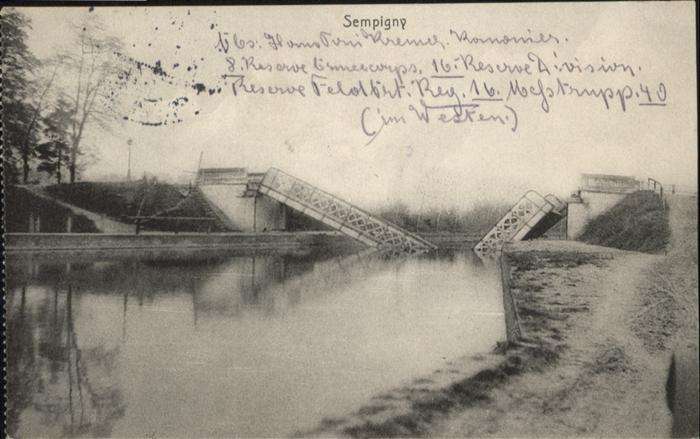 Sempigny
Abs. Hans Toni Kremer. Kanonier.
8. Reserve Armeecorps. 16. Reserve Division.
Reserve Feldart. Reg. 16. Meßtrupp. 40
(im Westen.)